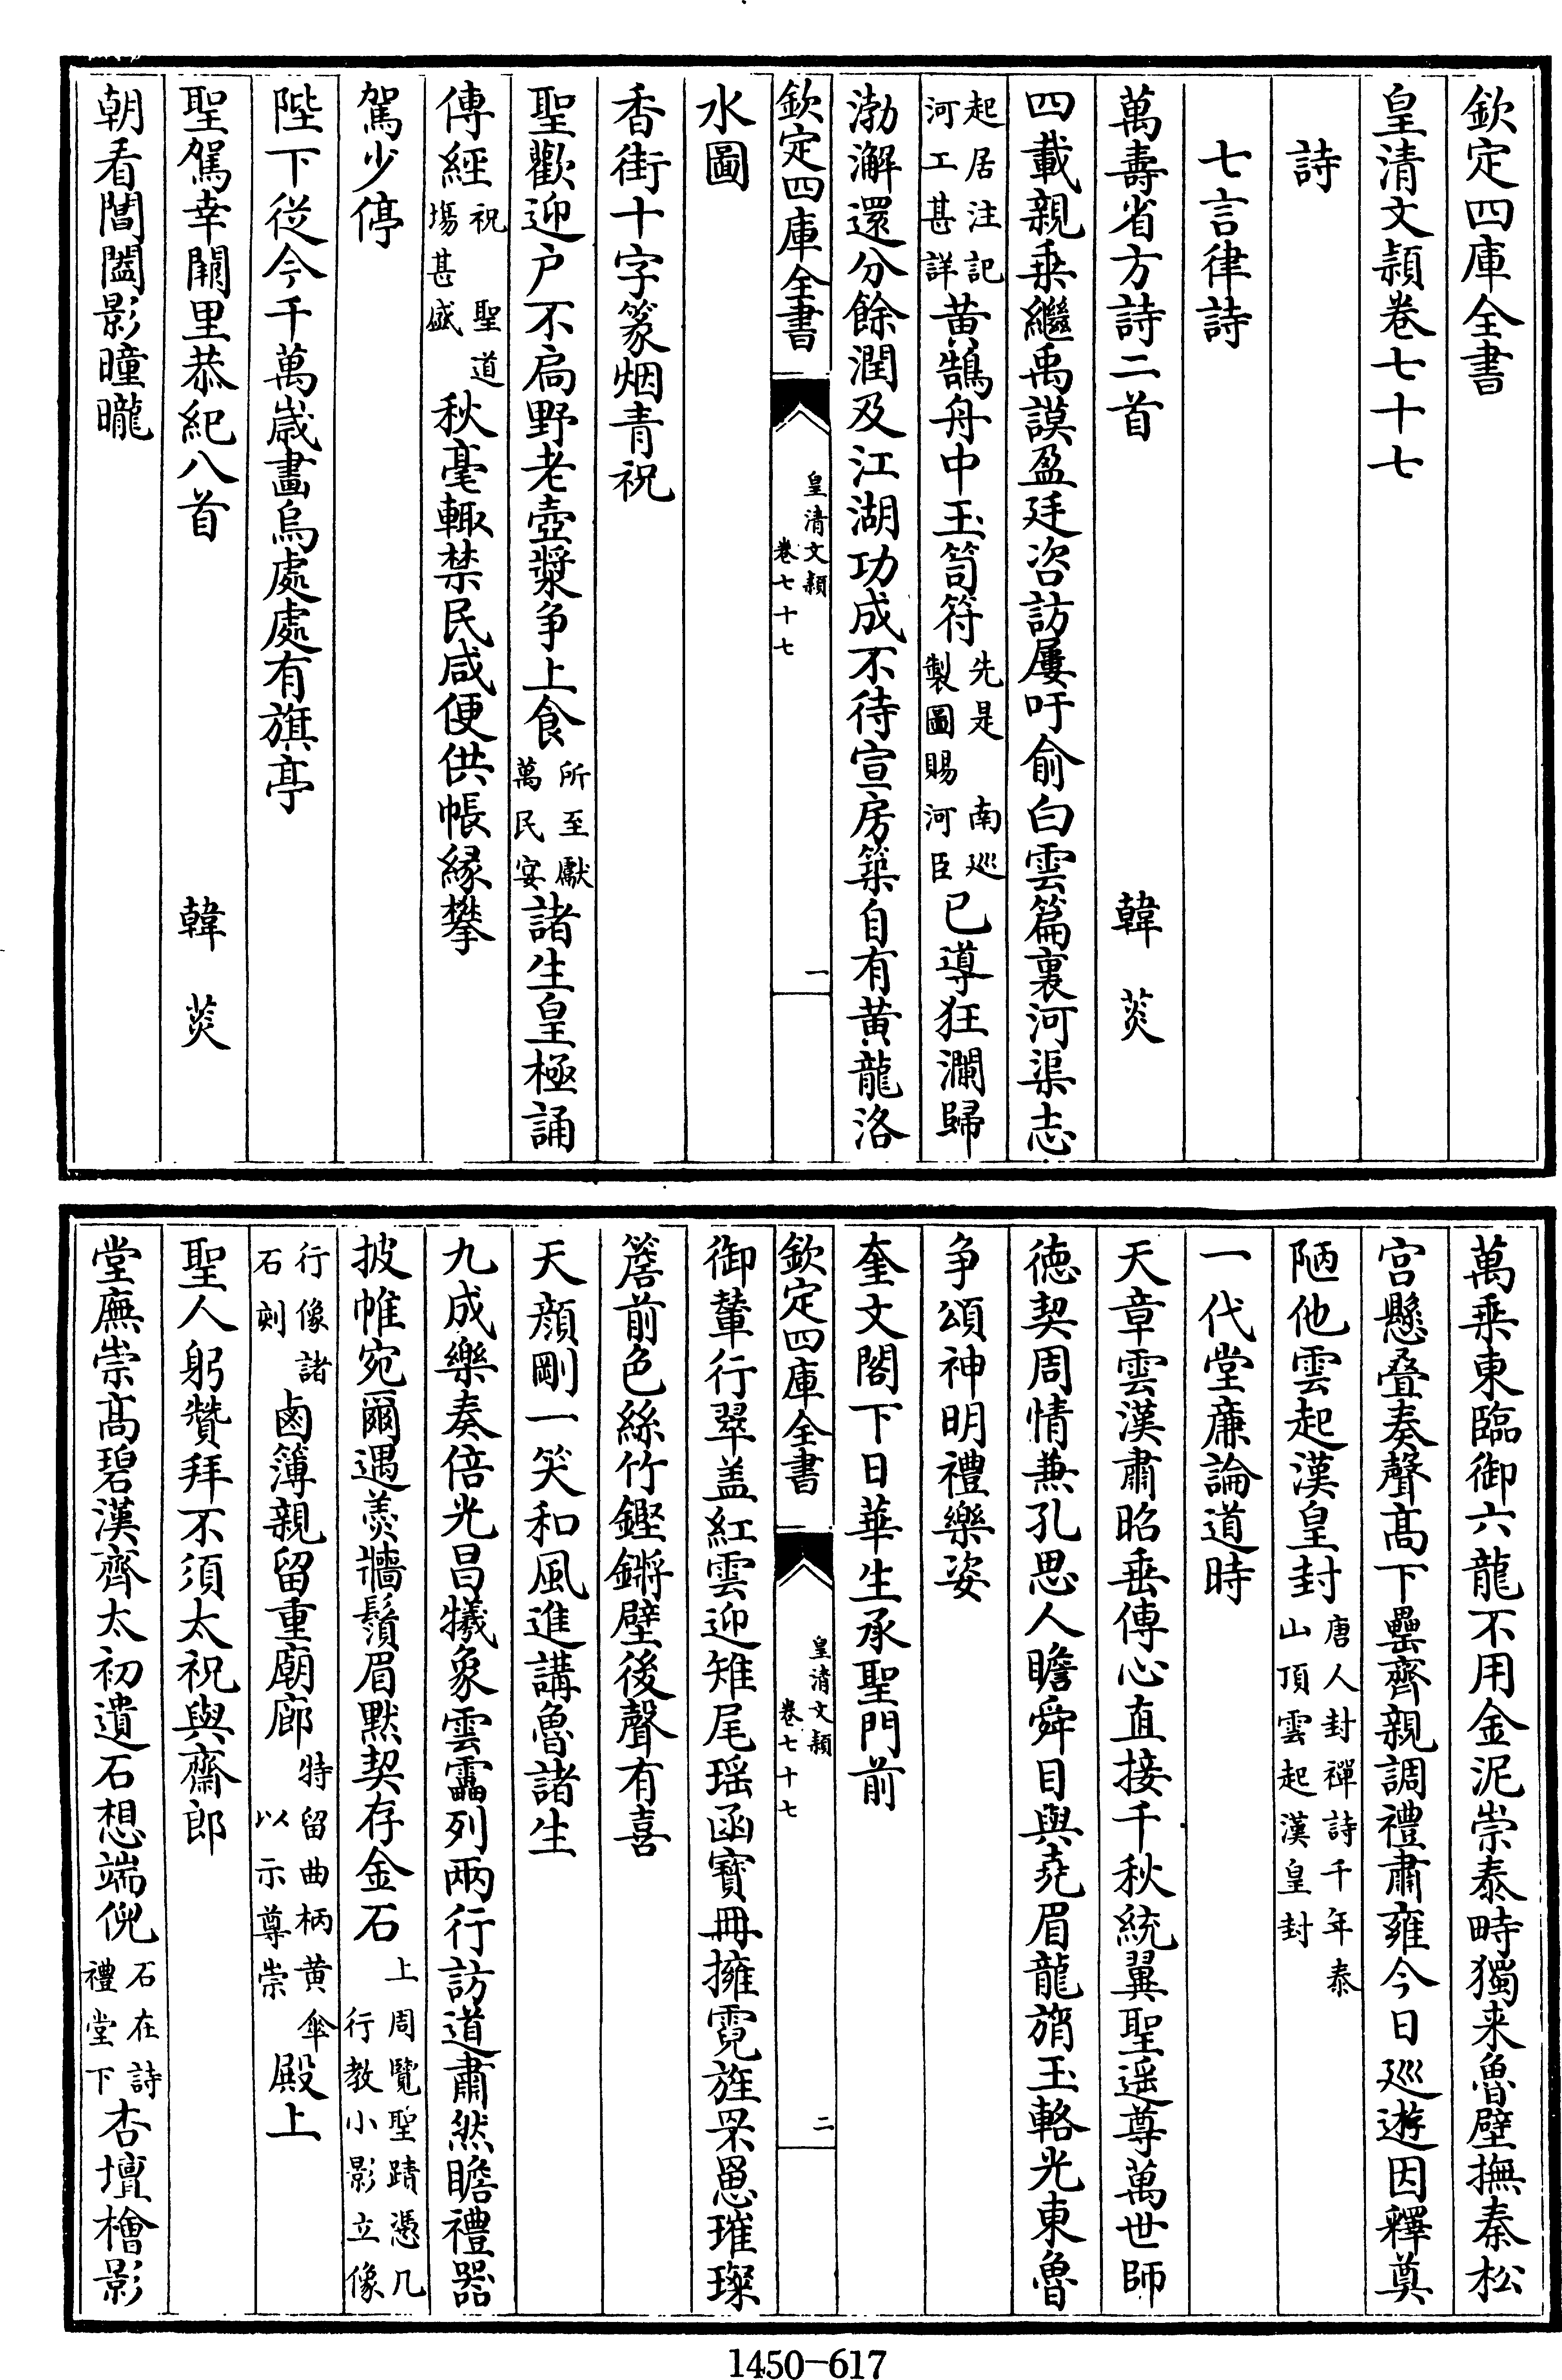 欽定四庫全書
皇清文穎卷七十七
詩
七言律詩
萬壽省方詩二首 韓菼
四載親乗繼禹謨盈廷咨訪屢吁俞白雲篇裏河渠志
起居注記河工甚詳黄鵠舟中玉笥符先是 南巡製圖賜河臣已導狂瀾歸
渤澥還分餘潤及江湖功成不待宣房築自有黄龍洛
欽定四庫全書 皇清文穎 卷七十七 一
水圖
香街十字篆烟青祝
聖歡迎户不扃野老壺漿争上食所至獻萬民宴諸生皇極誦
傳經祝 聖道塲甚盛秋毫輙禁民咸便供帳縁攀
駕少停
陛下從今千萬嵗畫烏處處有旗亭
聖駕幸闕里恭紀八首 韓菼
朝看閶闔影曈曨
萬乗東臨御六龍不用金泥崇泰畤獨来魯壁撫秦松
宫懸叠奏聲髙下罍齊親調禮肅雍今日廵遊因釋奠
陋他雲起漢皇封唐人封禪詩千年泰山頂雲起漢皇封
一代堂亷論道時
天章雲漢肅昭垂傳心直接千秋統翼聖遥尊萬世師
徳契周情兼孔思人瞻舜目與堯眉龍旓玉輅光東魯
争頌神明禮樂姿
奎文閣下日華生承聖門前
欽定四庫全書 皇清文穎 卷七十七 二
御輦行翠盖紅雲迎雉尾瑶函寳冊擁霓旌罘罳璀璨
簷前色絲竹鏗鏘壁後聲有喜
天顔剛一笑和風進講魯諸生
九成樂奏倍光昌犧象雲靁列兩行訪道肅然瞻禮器
披帷宛爾遇羮牆鬚眉黙契存金石上周覽聖蹟憑几行教小影立像
行像諸石刻鹵簿親留重廟廊特留曲柄黄傘以示尊崇殿上
聖人躬贊拜不須太祝與齋郎
堂廡崇髙碧漢齊太初遺石想端倪石在詩禮堂下杏壇檜影
1450-617